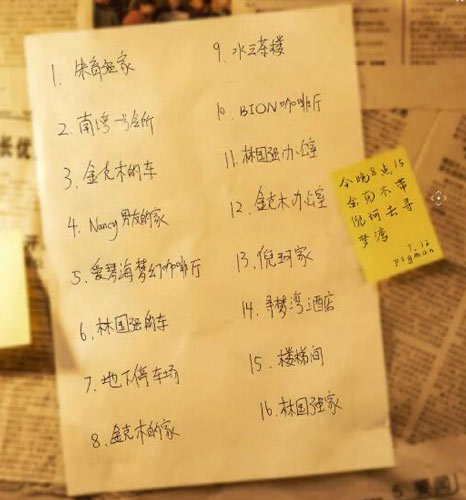 1. 朱育强家
2. 南湾一号会所
3. 金克木的车
4. Nancy男友的家
5. 爱琴海梦幻咖啡厅
6. 林国强的车
7. 地下停车场
8. 金克木的家
9. 水云茶楼
10. BION咖啡厅
11. 林国强办公室
12. 金克木办公室
13. 倪珂家
14. 寻梦湾酒店
15. 楼梯间
16. 林国强家
今晚8点15
金克木带
倪珂去寻
梦湾
7.12
pigman